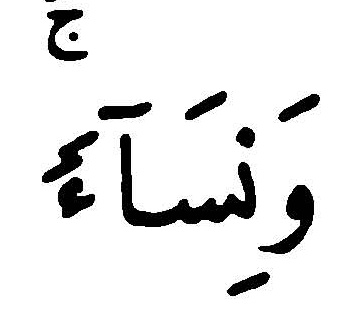 وَنِسَآءًۚ